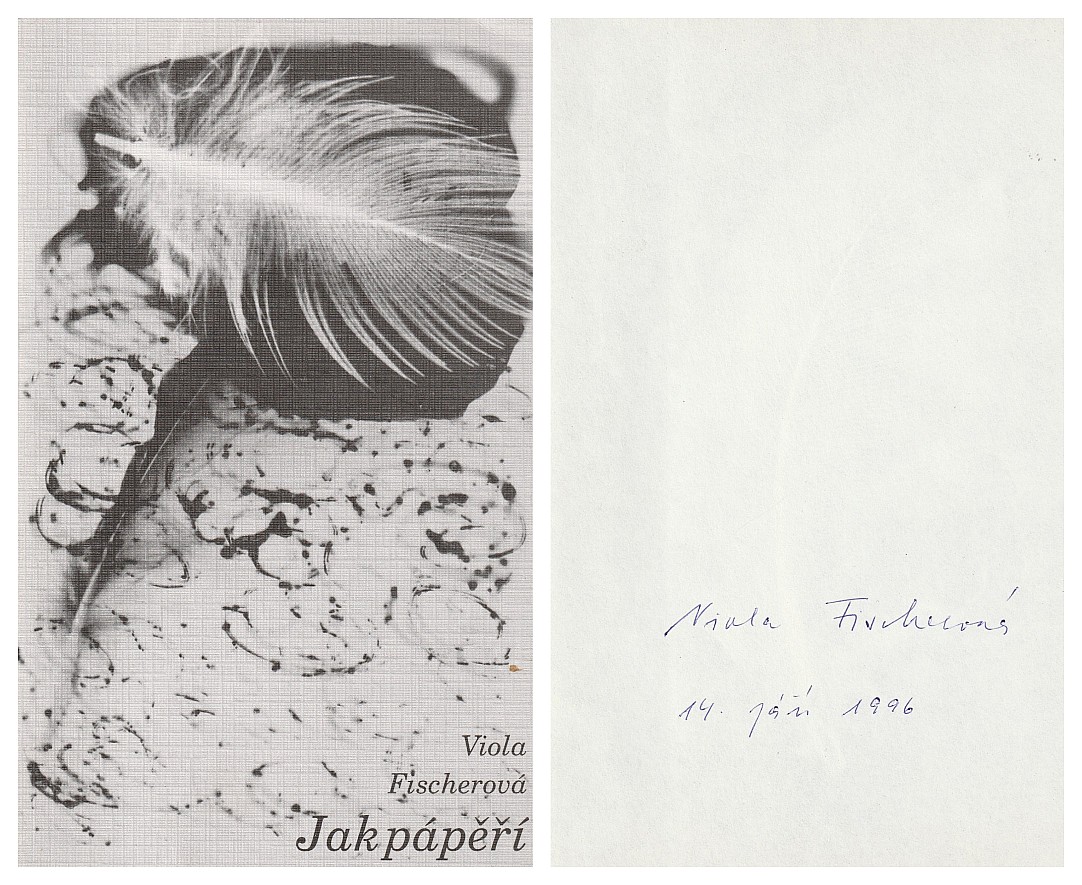 Viola
Fischerová
Jak pápěří
Viola Fischerová
14. září 1996